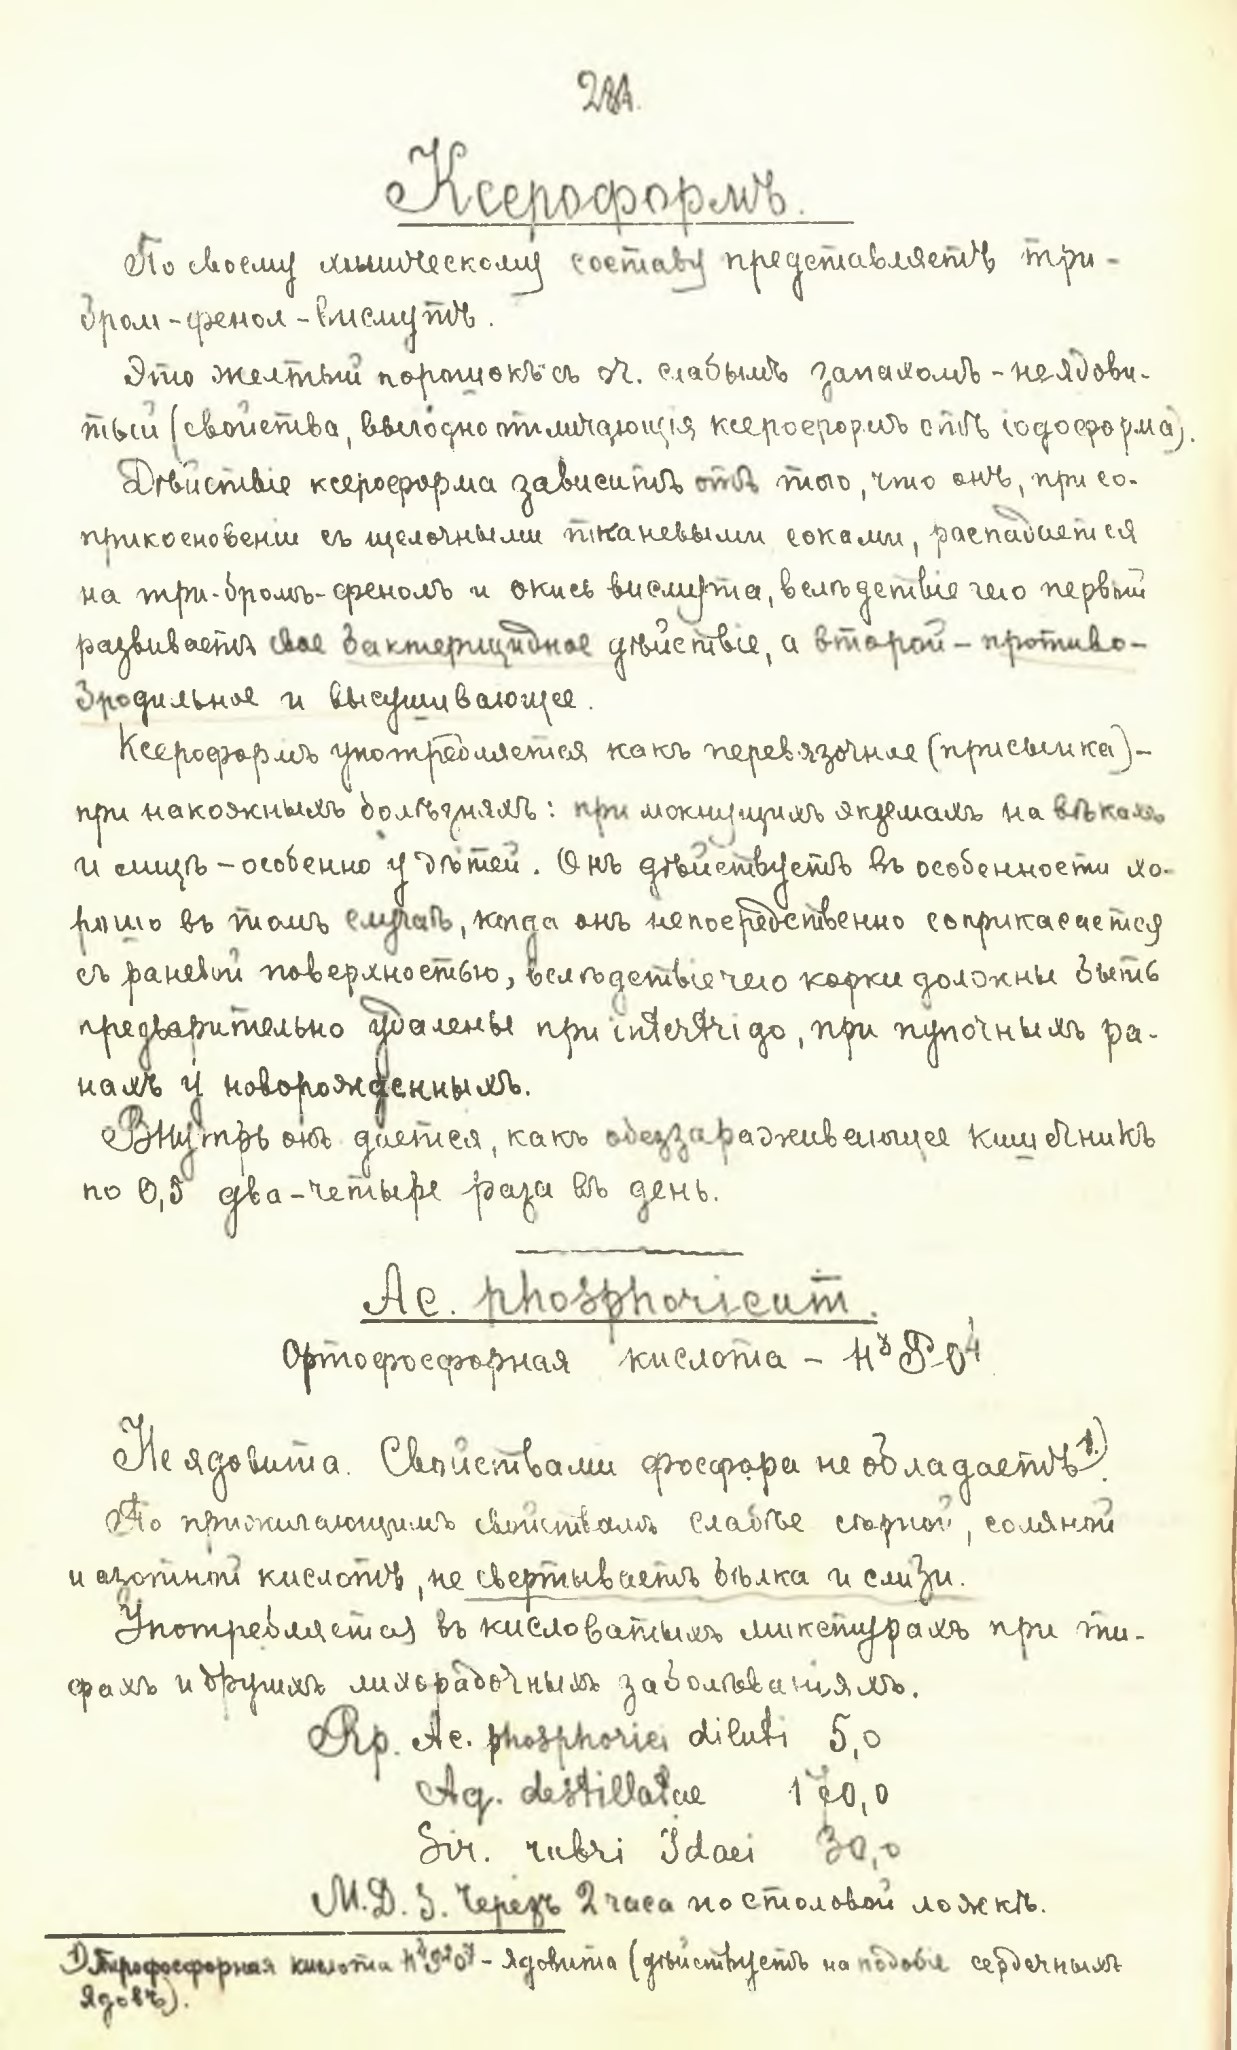 284.
Ксероформъ.
По своему химическому составу представляетъ три-
бром-фенол-висмутъ.
Это желтый порошокъ съ оч. слабымъ запахомъ - неядови-
тый (свойства, выгодно отличающія ксероформъ отъ іодоформа).
Дѣйствіе ксероформа зависитъ отъ того, что онъ, при со-
прикосновеніи съ щелочными тканевыми соками, распадается
на три-бромъ-фенолъ и окись висмута, вслѣдствіе чего первый
развиваетъ свое бактерицидное дѣйствіе, а второй - противо-
бродильное и высушивающее.
Ксероформъ употребляется какъ перевязочное (присыпка) -
при накожныхъ болѣзняхъ: при мокнущихъ якземахъ на вѣкахъ
и лицѣ - особенно у дѣтей. Онъ дѣйствуетъ въ особенности хо-
рошо въ томъ случаѣ, когда онъ непосредственно соприкасается
съ раневой поверхностью, вслѣдствіе чего корки должны быть
предварительно удалены при intertrigo, при пупочныхъ ра-
нахъ у новорожденныхъ.
Внутрь онъ дается, какъ обеззараживающее кишечникъ
по 0,5 два-четыре раза въ день.
Ac. phosphoricum.
Ортофосфорная кислота - H³PO⁴
Не ядовита. Свойствами фосфора не обладаетъ¹⁾.
По прижигающимъ свойствамъ слабѣе сѣрной, соляной
и азотной кислотъ, не свертываетъ бѣлка и слизи.
Употребляется въ кисловатыхъ микстурахъ при ти-
фахъ и другихъ лихорадочныхъ заболѣваніяхъ.
Rp. Ac. phosphorici diluti 5,0
Aq. destillatae 170,0
Sir. rubri Idaei 30,0
M.D.S. Черезъ 2 часа по столовой ложкѣ.
1) Пирофосфорная кислота H⁴P²O⁷ - ядовита (дѣйствуетъ на подобіе сердечныхъ
ядовъ).